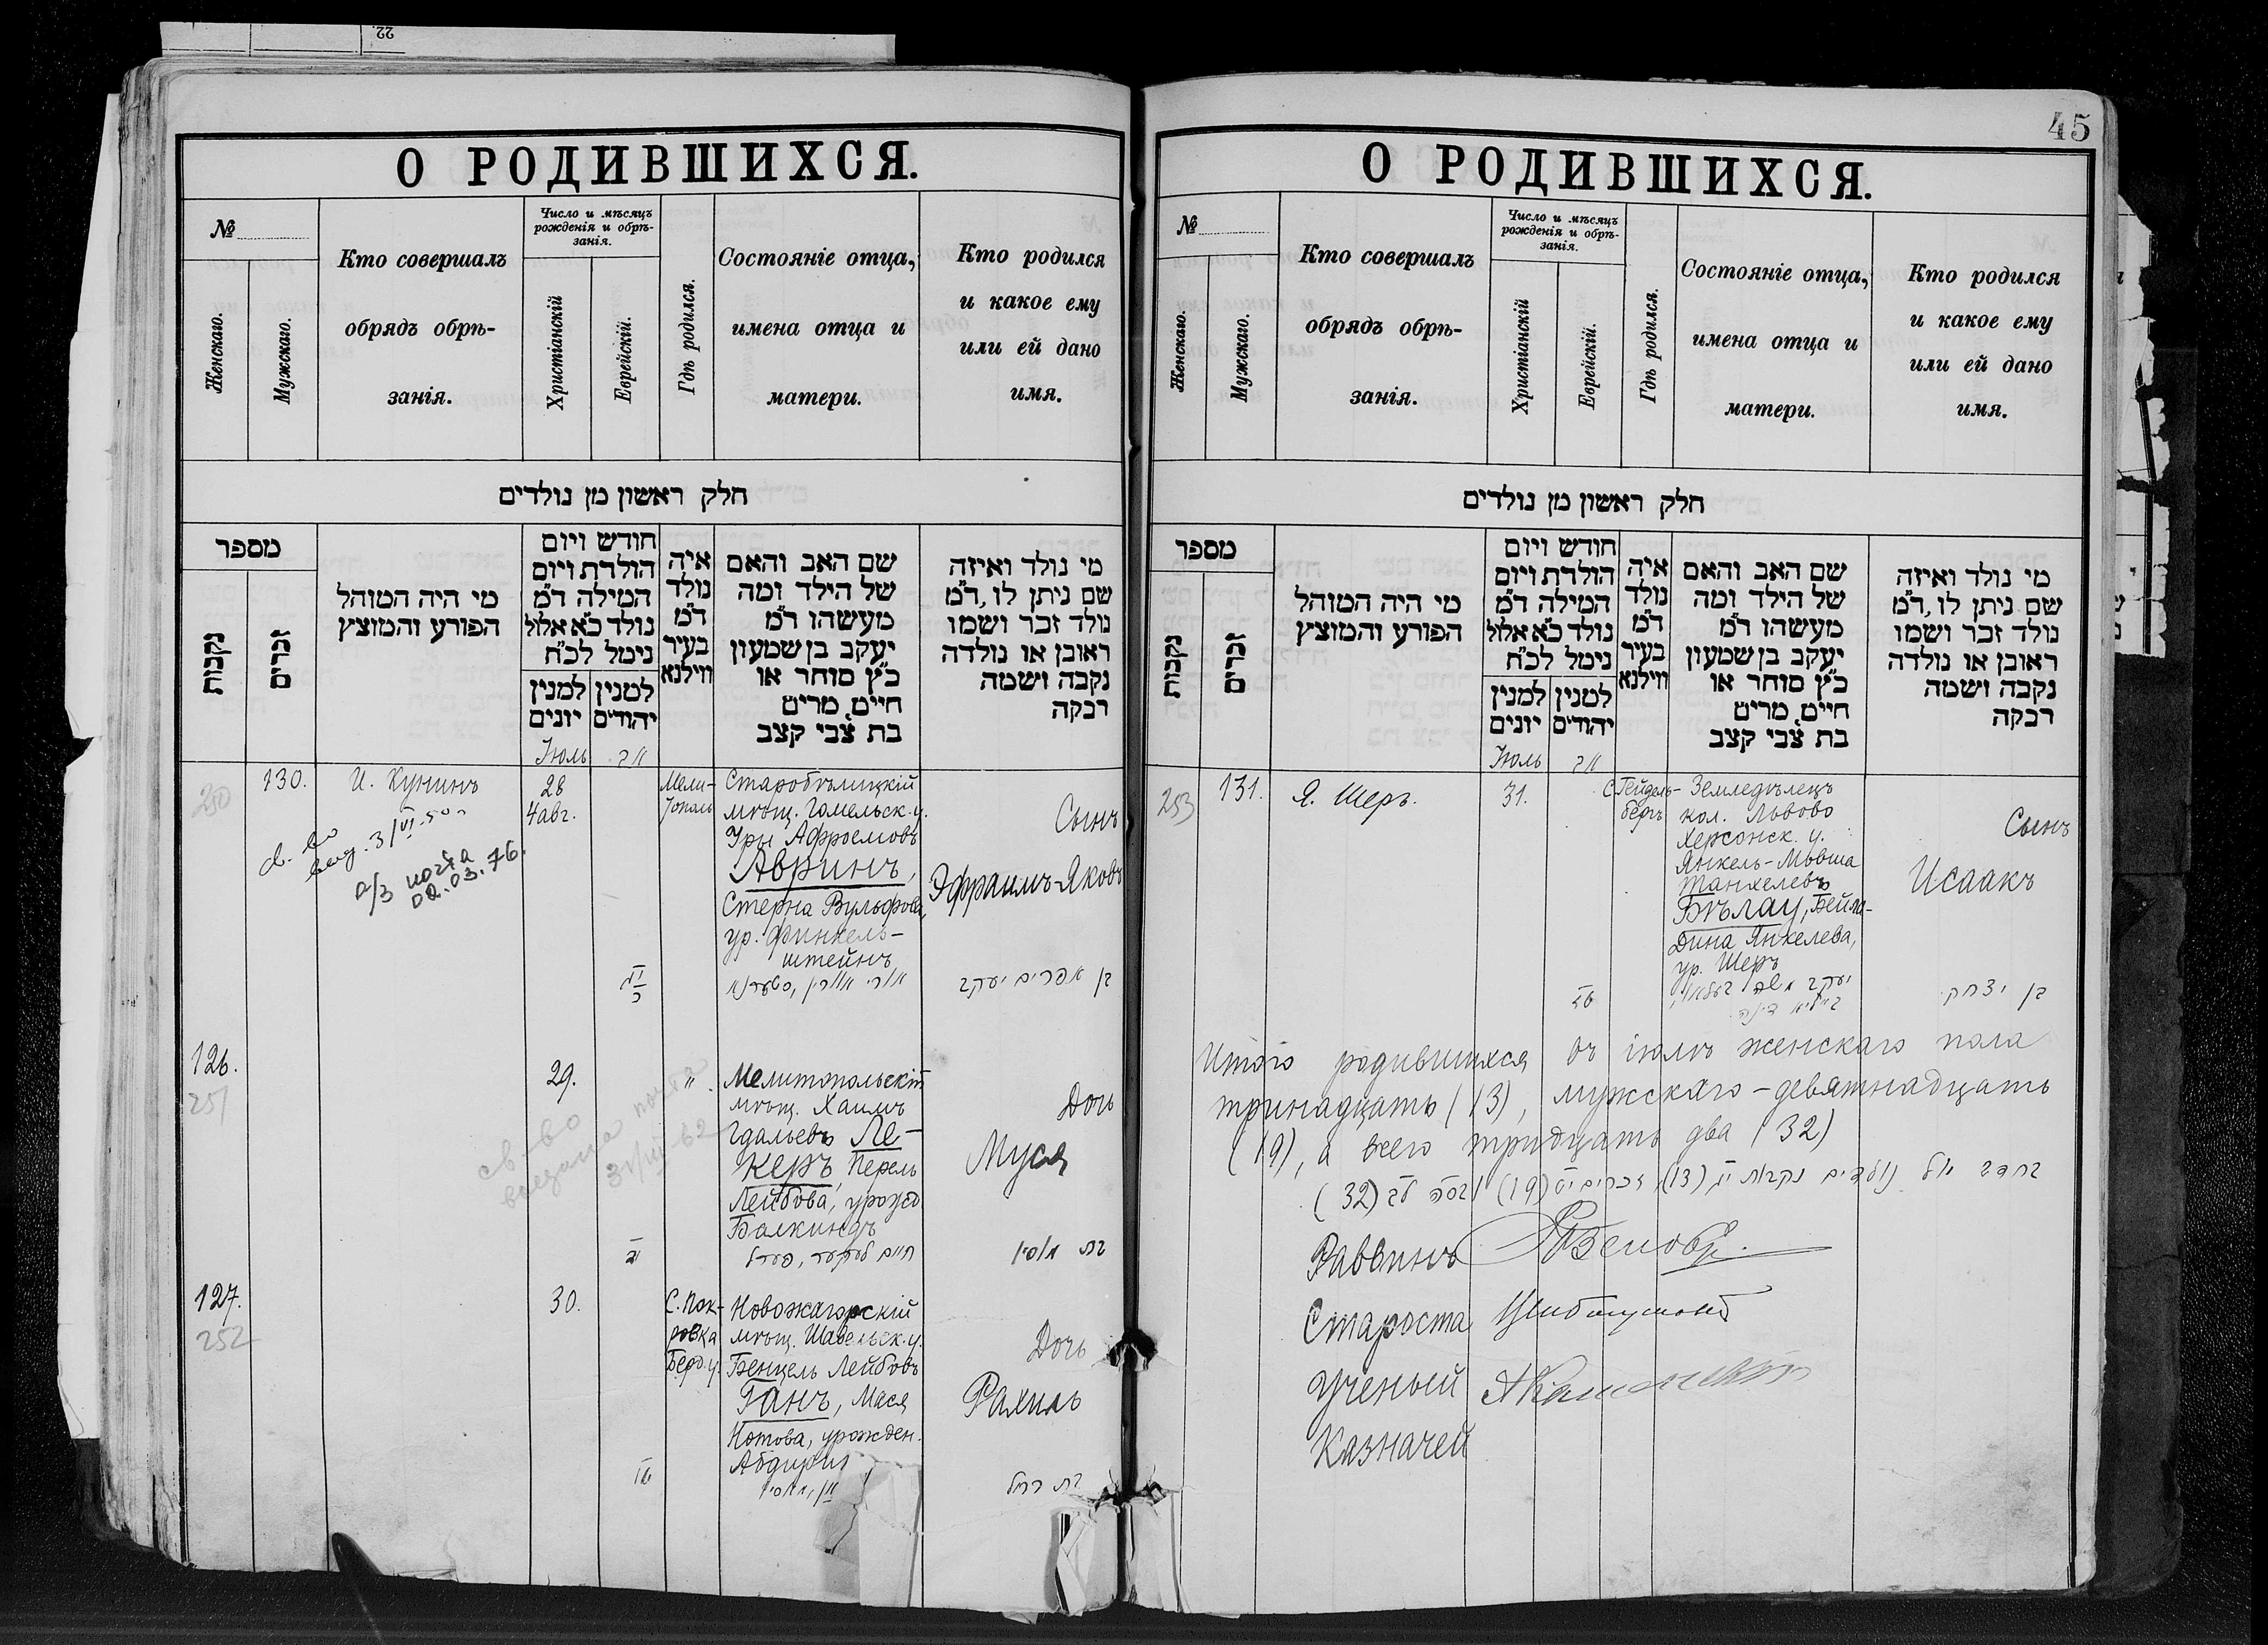 22.
О РОДИВШИХСЯ.
№
Женскаго.
Мужскаго.
Кто совершалъ
обрядъ обрѣ-
занія.
Число и мѣсяцъ
рожденія и обрѣ-
занія.
Христіанскій
Еврейскій.
Гдѣ родился.
Состояніе отца,
имена отца и
матери.
Кто родился
и какое ему
или ей дано
имя.
חלק ראשון מן נולדים
מספר
נקבות
זכרים
מי היה המוהל
הפורע והמוצץ
חודש ויום
הולדת ויום
המילה ד״מ
נולד כ״א אלול
נימל לכ״ח
למנין
יונים
למנין
יהודים
איה
נולד
ד״מ
בעיר
ווילנא
שם האב והאם
של הילד ומה
מעשהו ד״מ
יעקב בן שמעון
כ״ץ סוחר או
חייט, מרים
בת צבי קצב
מי נולד ואיזה
שם ניתן לו, ד״מ
נולד זכר ושמו
ראובן או נולדה
נקבה ושמה
רבקה
Іюль
אב
250
130.
И. Кунинъ
28
4 авг.
Мели-
тополь
Старобѣлицкій
мѣщ. Гомельск. у.
Уры Афроемовъ
Авринъ,
Стерна Вульфова,
ур. Финкель-
штейнъ
Сынъ
Эфраимъ-Яковъ
св-во
выд. 3/VI-50 г
а/з почта
02.03.76.
בן אפרים יעקב
126.
251
29.
"
Мелитопольскій
мѣщ. Хаимъ
Гдальевъ Ле-
керъ, Перель
Лейбова, урожд
Балкиндъ
Дочь
Муся
св-во
выслано почта
חיים לעקער, פערל
בת מוסיא
127.
252
30.
С. Пок-
ровка
Берд. у.
Новожагорскій
мѣщ. Шавельск. у.
Бенцель Лейбовъ
Ганъ, Мася
Нотова, урожден.
Дочь
Рахиль
בת רחל
45
О РОДИВШИХСЯ.
№
Женскаго.
Мужскаго.
Кто совершалъ
обрядъ обрѣ-
занія.
Число и мѣсяцъ
рожденія и обрѣ-
занія.
Христіанскій
Еврейскій.
Гдѣ родился.
Состояніе отца,
имена отца и
матери.
Кто родился
и какое ему
или ей дано
имя.
חלק ראשון מן נולדים
מספר
נקבות
זכרים
מי היה המוהל
הפורע והמוצץ
חודש ויום
הולדת ויום
המילה ד״מ
נולד כ״א אלול
נימל לכ״ח
למנין
יונים
למנין
יהודים
איה
נולד
ד״מ
בעיר
ווילנא
שם האב והאם
של הילד ומה
מעשהו ד״מ
יעקב בן שמעון
כ״ץ סוחר או
חייט, מרים
בת צבי קצב
מי נולד ואיזה
שם ניתן לו, ד״מ
נולד זכר ושמו
ראובן או נולדה
נקבה ושמה
רבקה
Іюль
אב
253
131.
Я. Шеръ.
31.
С. Гейдель-
бергъ
Земледѣлецъ
кол. Львово
Херсонск. у.
Янкель-Мовша
Танхелевъ
Бѣлау, Бейла-
Дина Янкелева,
ур. Шеръ
Сынъ
Исаакъ
יעקב משה
ביילא דינה
בן יצחק
Итого родившихся въ іюлѣ женскаго пола
тринадцать (13), мужскаго - девятнадцать
(19), а всего тридцать два (32)
בחדש יולי נולדים נקבות י״ג (13), זכרים י״ט (19)
(32)
Раввинъ
Староста
Ученый
Казначей